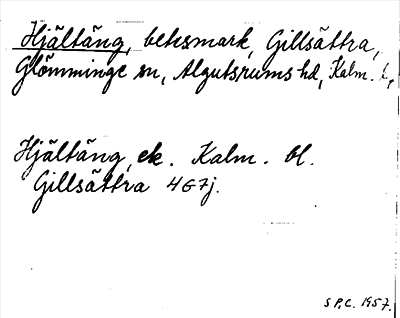 Hjältäng, betesmark, Gillsättra,
Glömminge sn, Algutsrums hd, Kalm. l.,
Hjältäng, ek. Kalm. bl.
Gillsättra 4G7j.
S P.C. 1957.